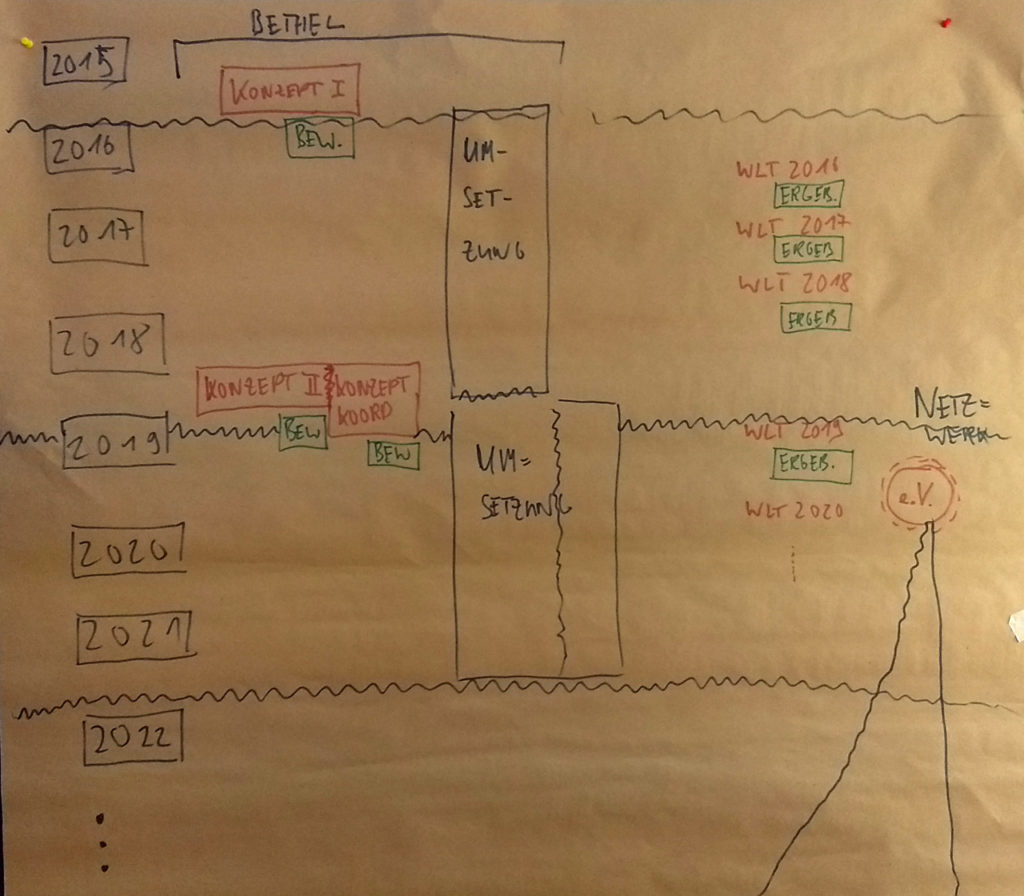 BETHEL
2015
KONZEPT I
2016
BEW.
UM-
SET-
ZUNG
WLT 2016
ERGEB.
2017
WLT 2017
ERGEB
WLT 2018
ERGEB
2018
KONZEPT II
KONZEPT
KOORD
BEW
BEW
2019
UM=
SETZUNG
WLT 2019
ERGEB.
NETZ=
WERK
e.V.
WLT 2020
2020
2021
2022